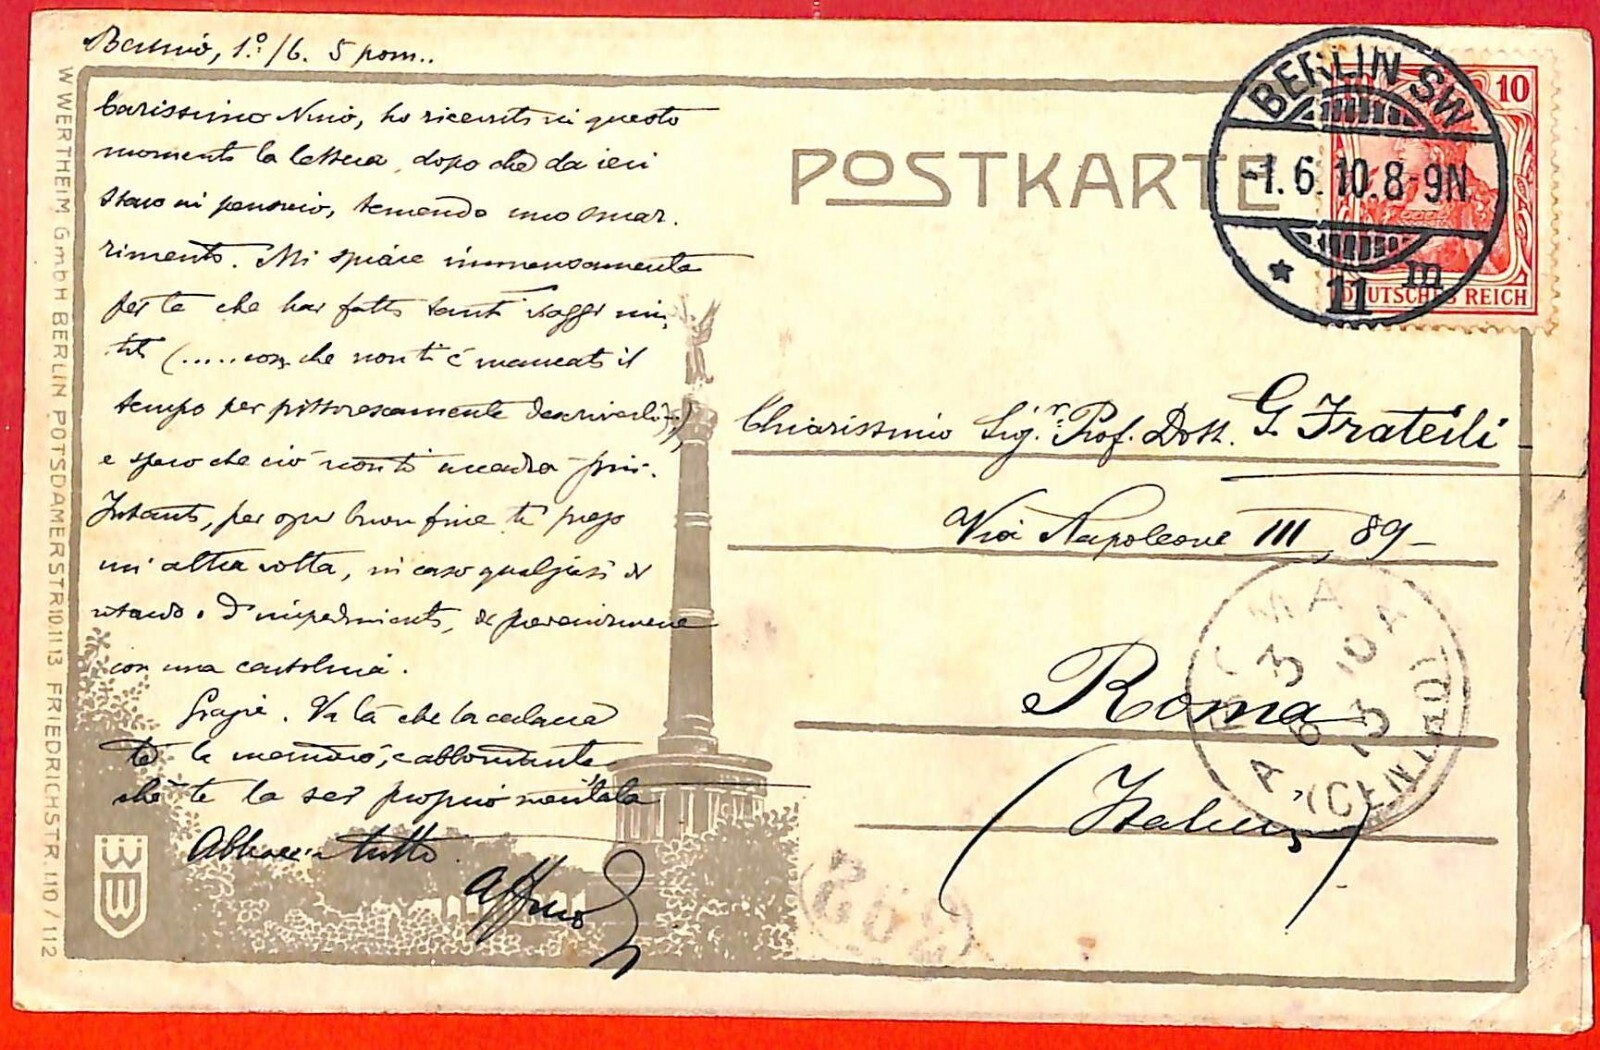 Berlino, 1º/6. 5 pom..
Carissimo Nino, ho ricevuto in questo
momento la lettera, dopo che da ieri
stavo in pensiero, temendo uno smar-
rimento. Mi spiace immensamente
per te che hai fatto tanti viaggi inu-
tili (..... non ti è mancato il
tempo per pittorescamente descriverli)
e spero che ciò non ti accadra più.
Intanto, per ogni buon fine ti prego
un'altra volta, in caso qualsiasi di
ritardo o d'impedimento, di prevenirmene
con una cartolina.
Grazie. Va là che la
te la manderò, e abbondante
chè te la sei proprio meritata
Abbraccia tutto.
POSTKARTE
BERLIN SW
-1.6.10.8-9N
* 11 m
10
DEUTSCHES REICH
Chiarissimo Sigr. Prof. Dott. G. Frateili
Via Napoleone III, 89-
Roma
(Italien)
ROMA
CENTRO
W WERTHEIM GmbH BERLIN POTSDAMERSTR 10 11 13 FRIEDRICHSTR 110/112
W
W